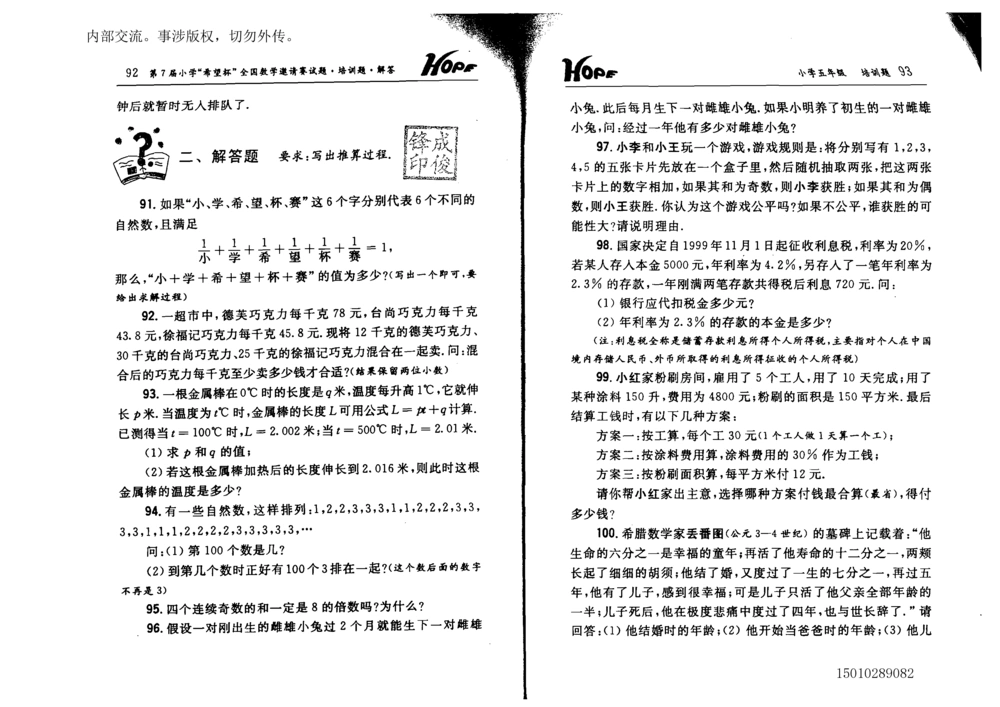 内部交流。事涉版权，切勿外传。
92 第7届小学“希望杯”全国数学邀请赛试题·培训题·解答
HOPE
钟后就暂时无人排队了.
二、解答题 要求:写出推算过程.
锋成
印俊
91. 如果“小、学、希、望、杯、赛”这 6 个字分别代表 6 个不同的
自然数,且满足
1/小 + 1/学 + 1/希 + 1/望 + 1/杯 + 1/赛 = 1,
那么,“小＋学＋希＋望＋杯＋赛”的值为多少?(写出一个即可,要
给出求解过程)
92. 一超市中,德芙巧克力每千克 78 元,台尚巧克力每千克
43.8 元,徐福记巧克力每千克 45.8 元.现将 12 千克的德芙巧克力、
30 千克的台尚巧克力、25 千克的徐福记巧克力混合在一起卖.问:混
合后的巧克力每千克至少卖多少钱才合适?(结果保留两位小数)
93. 一根金属棒在 0℃ 时的长度是 q 米,温度每升高 1℃,它就伸
长 p 米.当温度为 t℃ 时,金属棒的长度 L 可用公式 L = pt + q 计算.
已测得当 t = 100℃ 时,L = 2.002 米;当 t = 500℃ 时,L = 2.01 米.
(1) 求 p 和 q 的值;
(2) 若这根金属棒加热后的长度伸长到 2.016 米,则此时这根
金属棒的温度是多少?
94. 有一些自然数,这样排列:1,2,2,3,3,3,1,1,2,2,2,3,3,
3,3,1,1,1,2,2,2,2,3,3,3,3,3,…
问:(1) 第 100 个数是几?
(2) 到第几个数时正好有 100 个 3 排在一起?(这个数后面的数字
不再是 3)
95. 四个连续奇数的和一定是 8 的倍数吗?为什么?
96. 假设一对刚出生的雌雄小兔过 2 个月就能生下一对雌雄
HOPE
小学五年级 培训题 93
小兔.此后每月生下一对雌雄小兔.如果小明养了初生的一对雌雄
小兔,问:经过一年他有多少对雌雄小兔?
97. 小李和小王玩一个游戏,游戏规则是:将分别写有 1,2,3,
4,5 的五张卡片先放在一个盒子里,然后随机抽取两张,把这两张
卡片上的数字相加,如果其和为奇数,则小李获胜;如果其和为偶
数,则小王获胜.你认为这个游戏公平吗?如果不公平,谁获胜的可
能性大?请说明理由.
98. 国家决定自 1999 年 11 月 1 日起征收利息税,利率为 20%,
若某人存入本金 5000 元,年利率为 4.2%,另存入了一笔年利率为
2.3% 的存款,一年刚满两笔存款共得税后利息 720 元.问:
(1) 银行应代扣税金多少元?
(2) 年利率为 2.3% 的存款的本金是多少?
(注:利息税全称是储蓄存款利息所得个人所得税,主要指对个人在中国
境内存储人民币、外币所取得的利息所得征收的个人所得税)
99. 小红家粉刷房间,雇用了 5 个工人,用了 10 天完成;用了
某种涂料 150 升,费用为 4800 元;粉刷的面积是 150 平方米.最后
结算工钱时,有以下几种方案:
方案一:按工算,每个工 30 元(1 个工人做 1 天算一个工);
方案二:按涂料费用算,涂料费用的 30% 作为工钱;
方案三:按粉刷面积算,每平方米付 12 元.
请你帮小红家出主意,选择哪种方案付钱最合算(最省),得付
多少钱?
100. 希腊数学家丢番图(公元 3—4 世纪)的墓碑上记载着:“他
生命的六分之一是幸福的童年;再活了他寿命的十二分之一,两颊
长起了细细的胡须;他结了婚,又度过了一生的七分之一,再过五
年,他有了儿子,感到很幸福;可是儿子只活了他父亲全部年龄的
一半;儿子死后,他在极度悲痛中度过了四年,也与世长辞了.”请
回答:(1) 他结婚时的年龄;(2) 他开始当爸爸时的年龄;(3) 他儿
15010289082